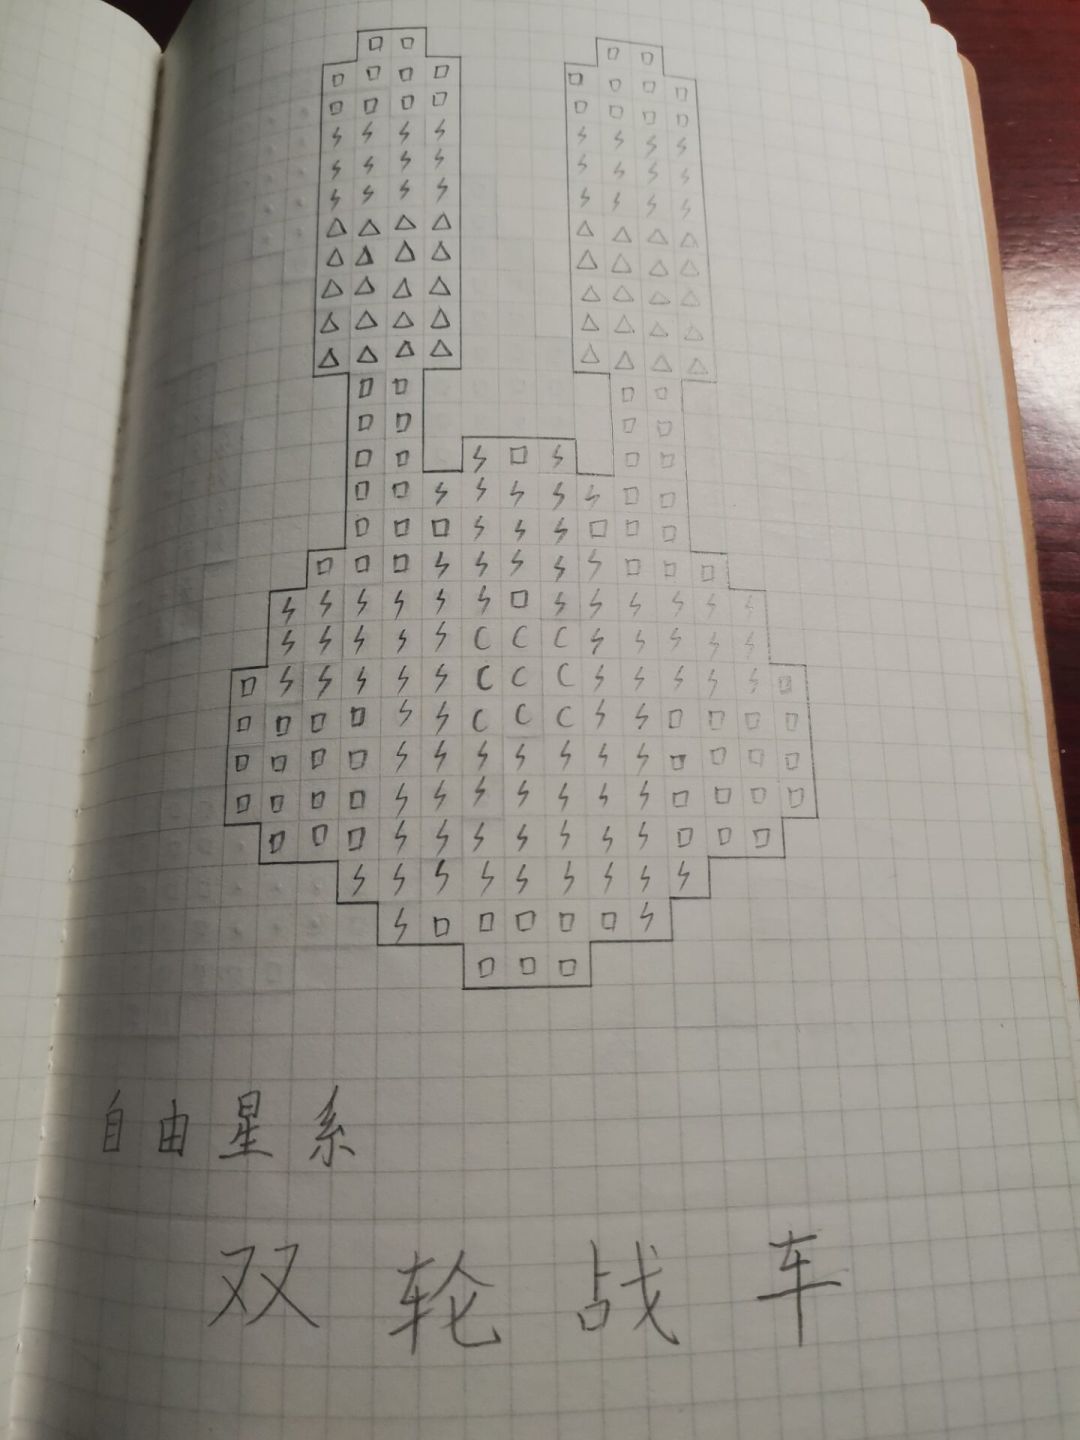 C C C
C C C
C C C
自由星系
双轮战车